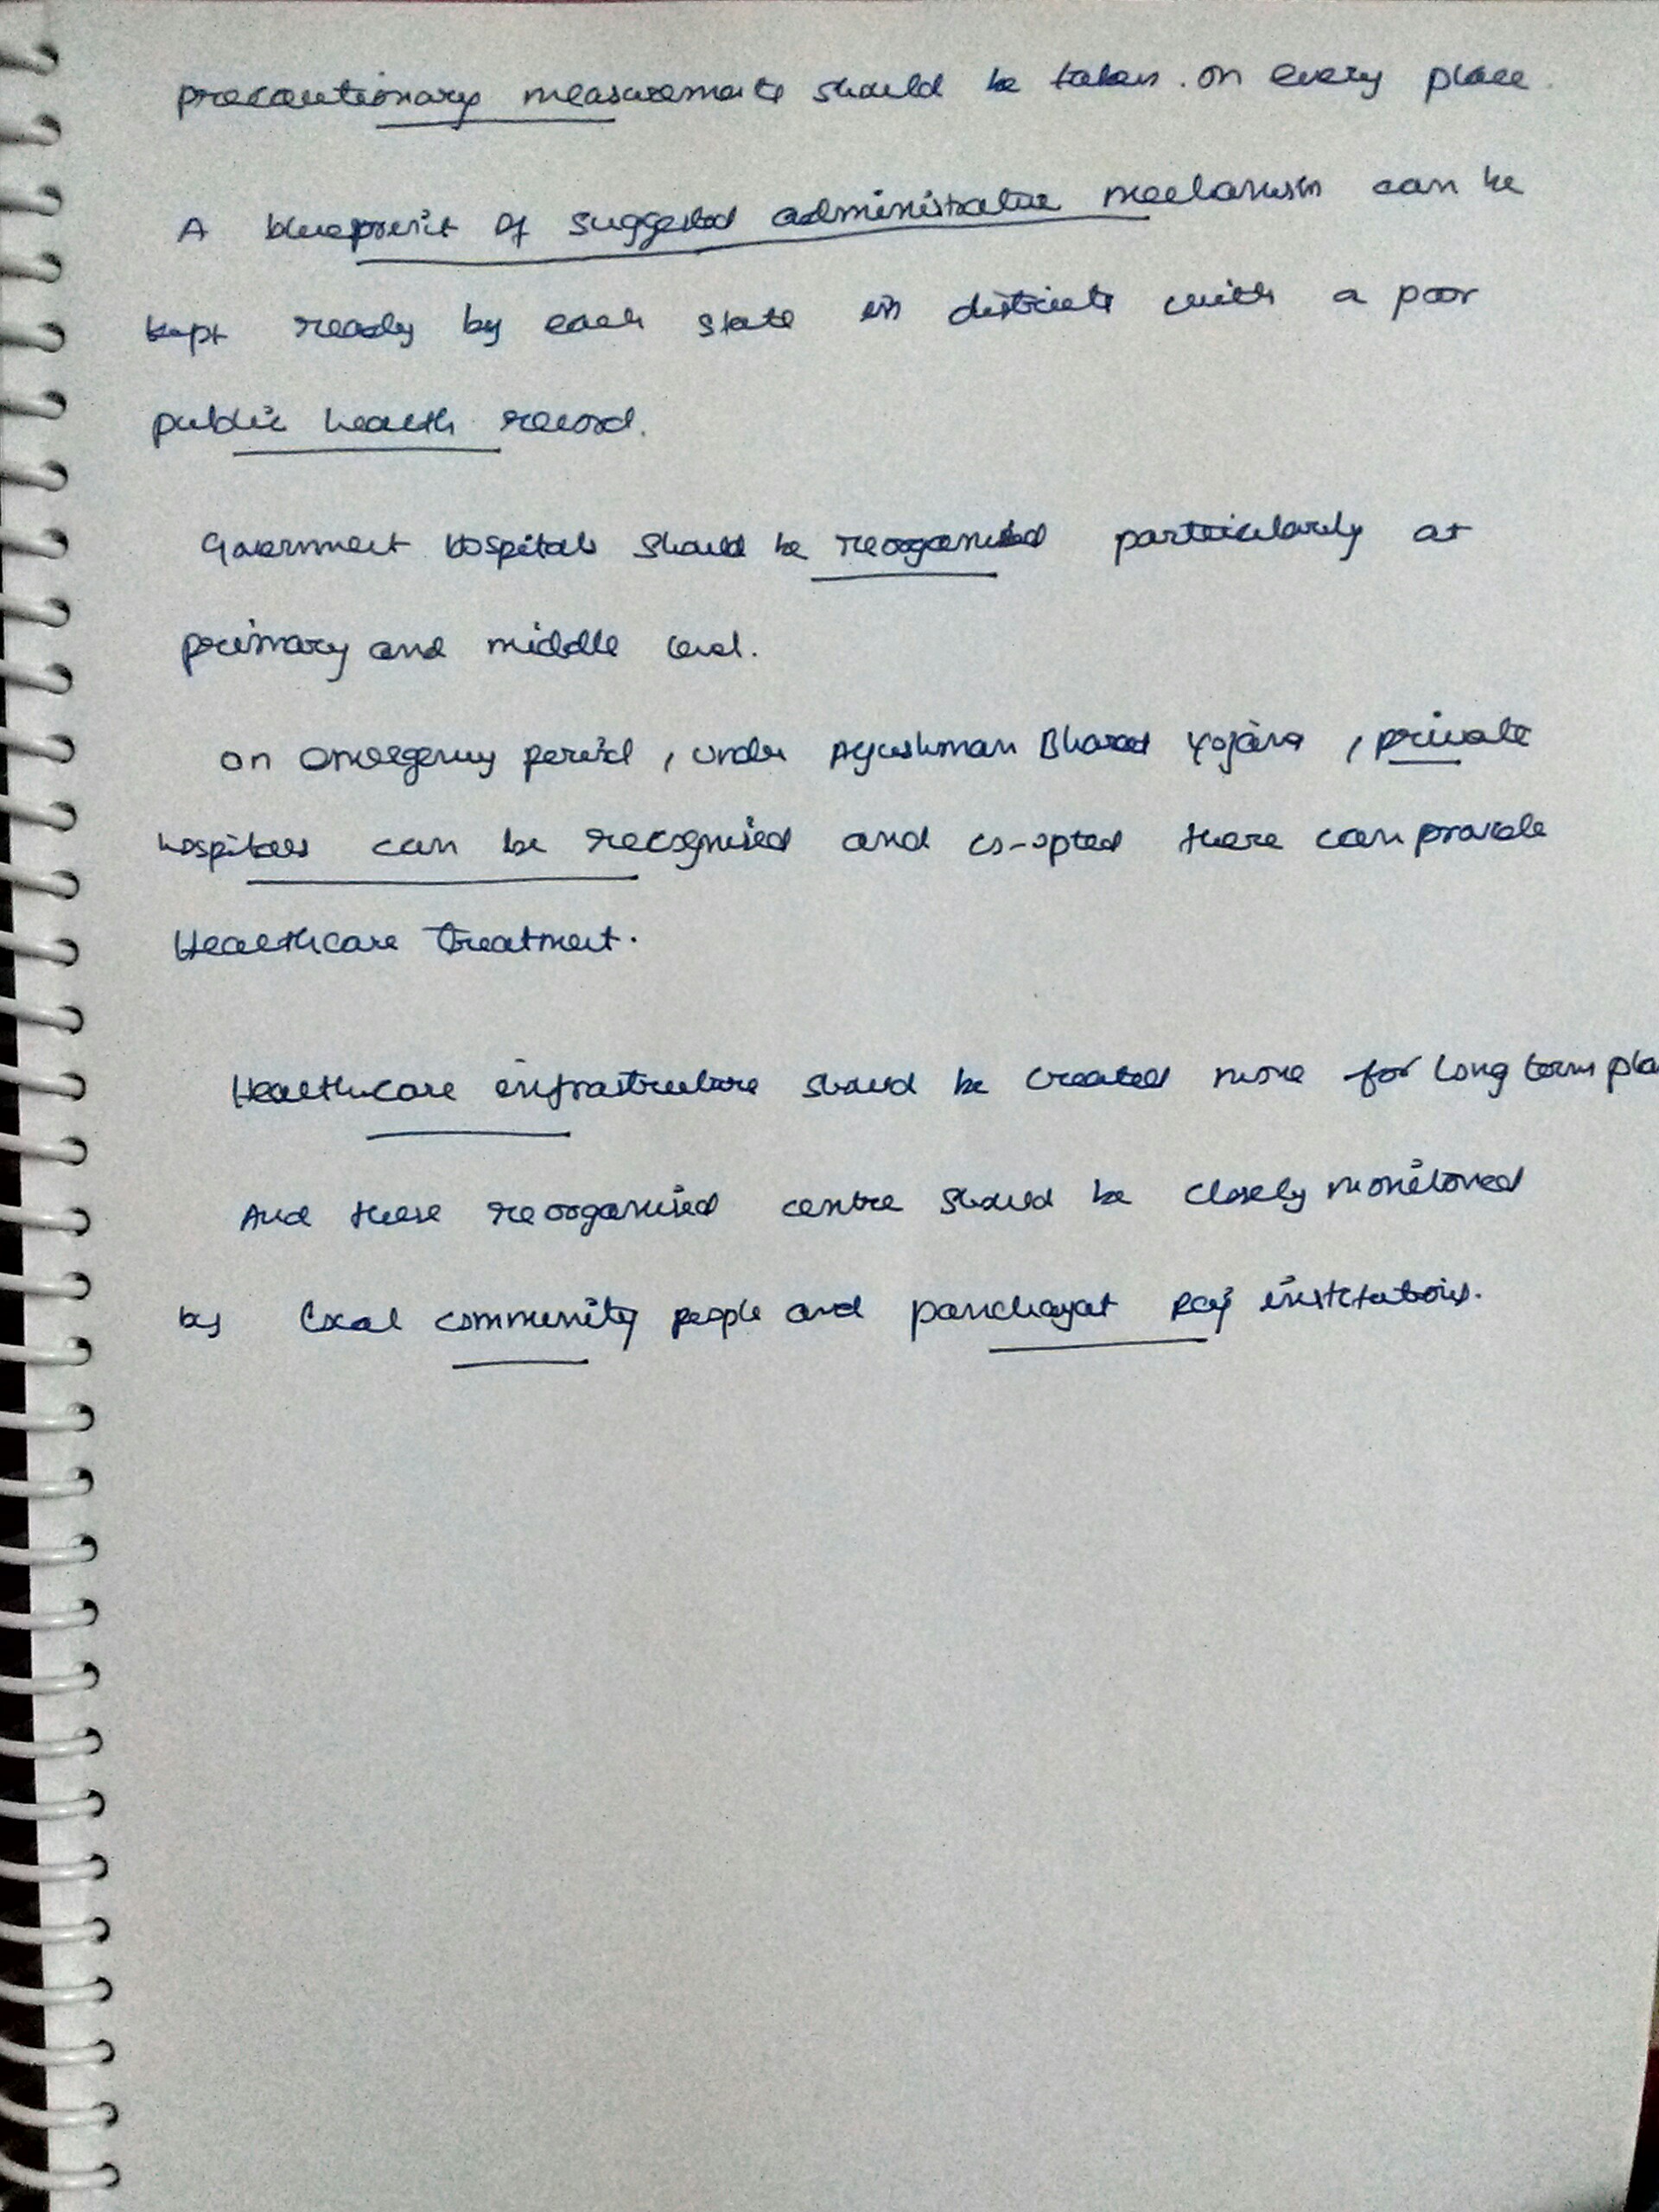 precautionary measurements should be taken. on every place.
A blueprint of suggested administrative mechanism can be
kept ready by each state in districts with a poor
public health record.
Government hospitals should be reorganised particularly at
primary and middle level.
on emergency period, under Ayushman Bharat Yojana, private
hospitals can be recognised and co-opted there can provide
Healthcare treatment.
Healthcare infrastructure should be created more for long term pla
And these reorganised centre should be closely monitored
by local community people and panchayat Raj institutions.